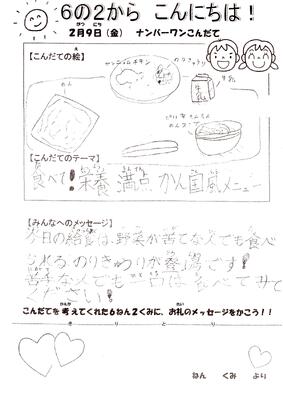 6の2から こんにちは!
がつ にち
2月9日(金) ナンバーワンこんだて
【こんだての絵】
ヤンニョムチキン
牛乳
めん
【こんだてのテーマ】
食べて!栄養満点 かん国風メニュー
【みんなへのメッセージ】
今日の給食は、野菜が苦手な人でも食べ
られるのりきわりが登場です!
苦手な人でも一口は食べてみて
ください!
こんだてを考えてくれた6ねん2くみに、お礼のメッセージをかこう!!
きりとり
ねん くみ より